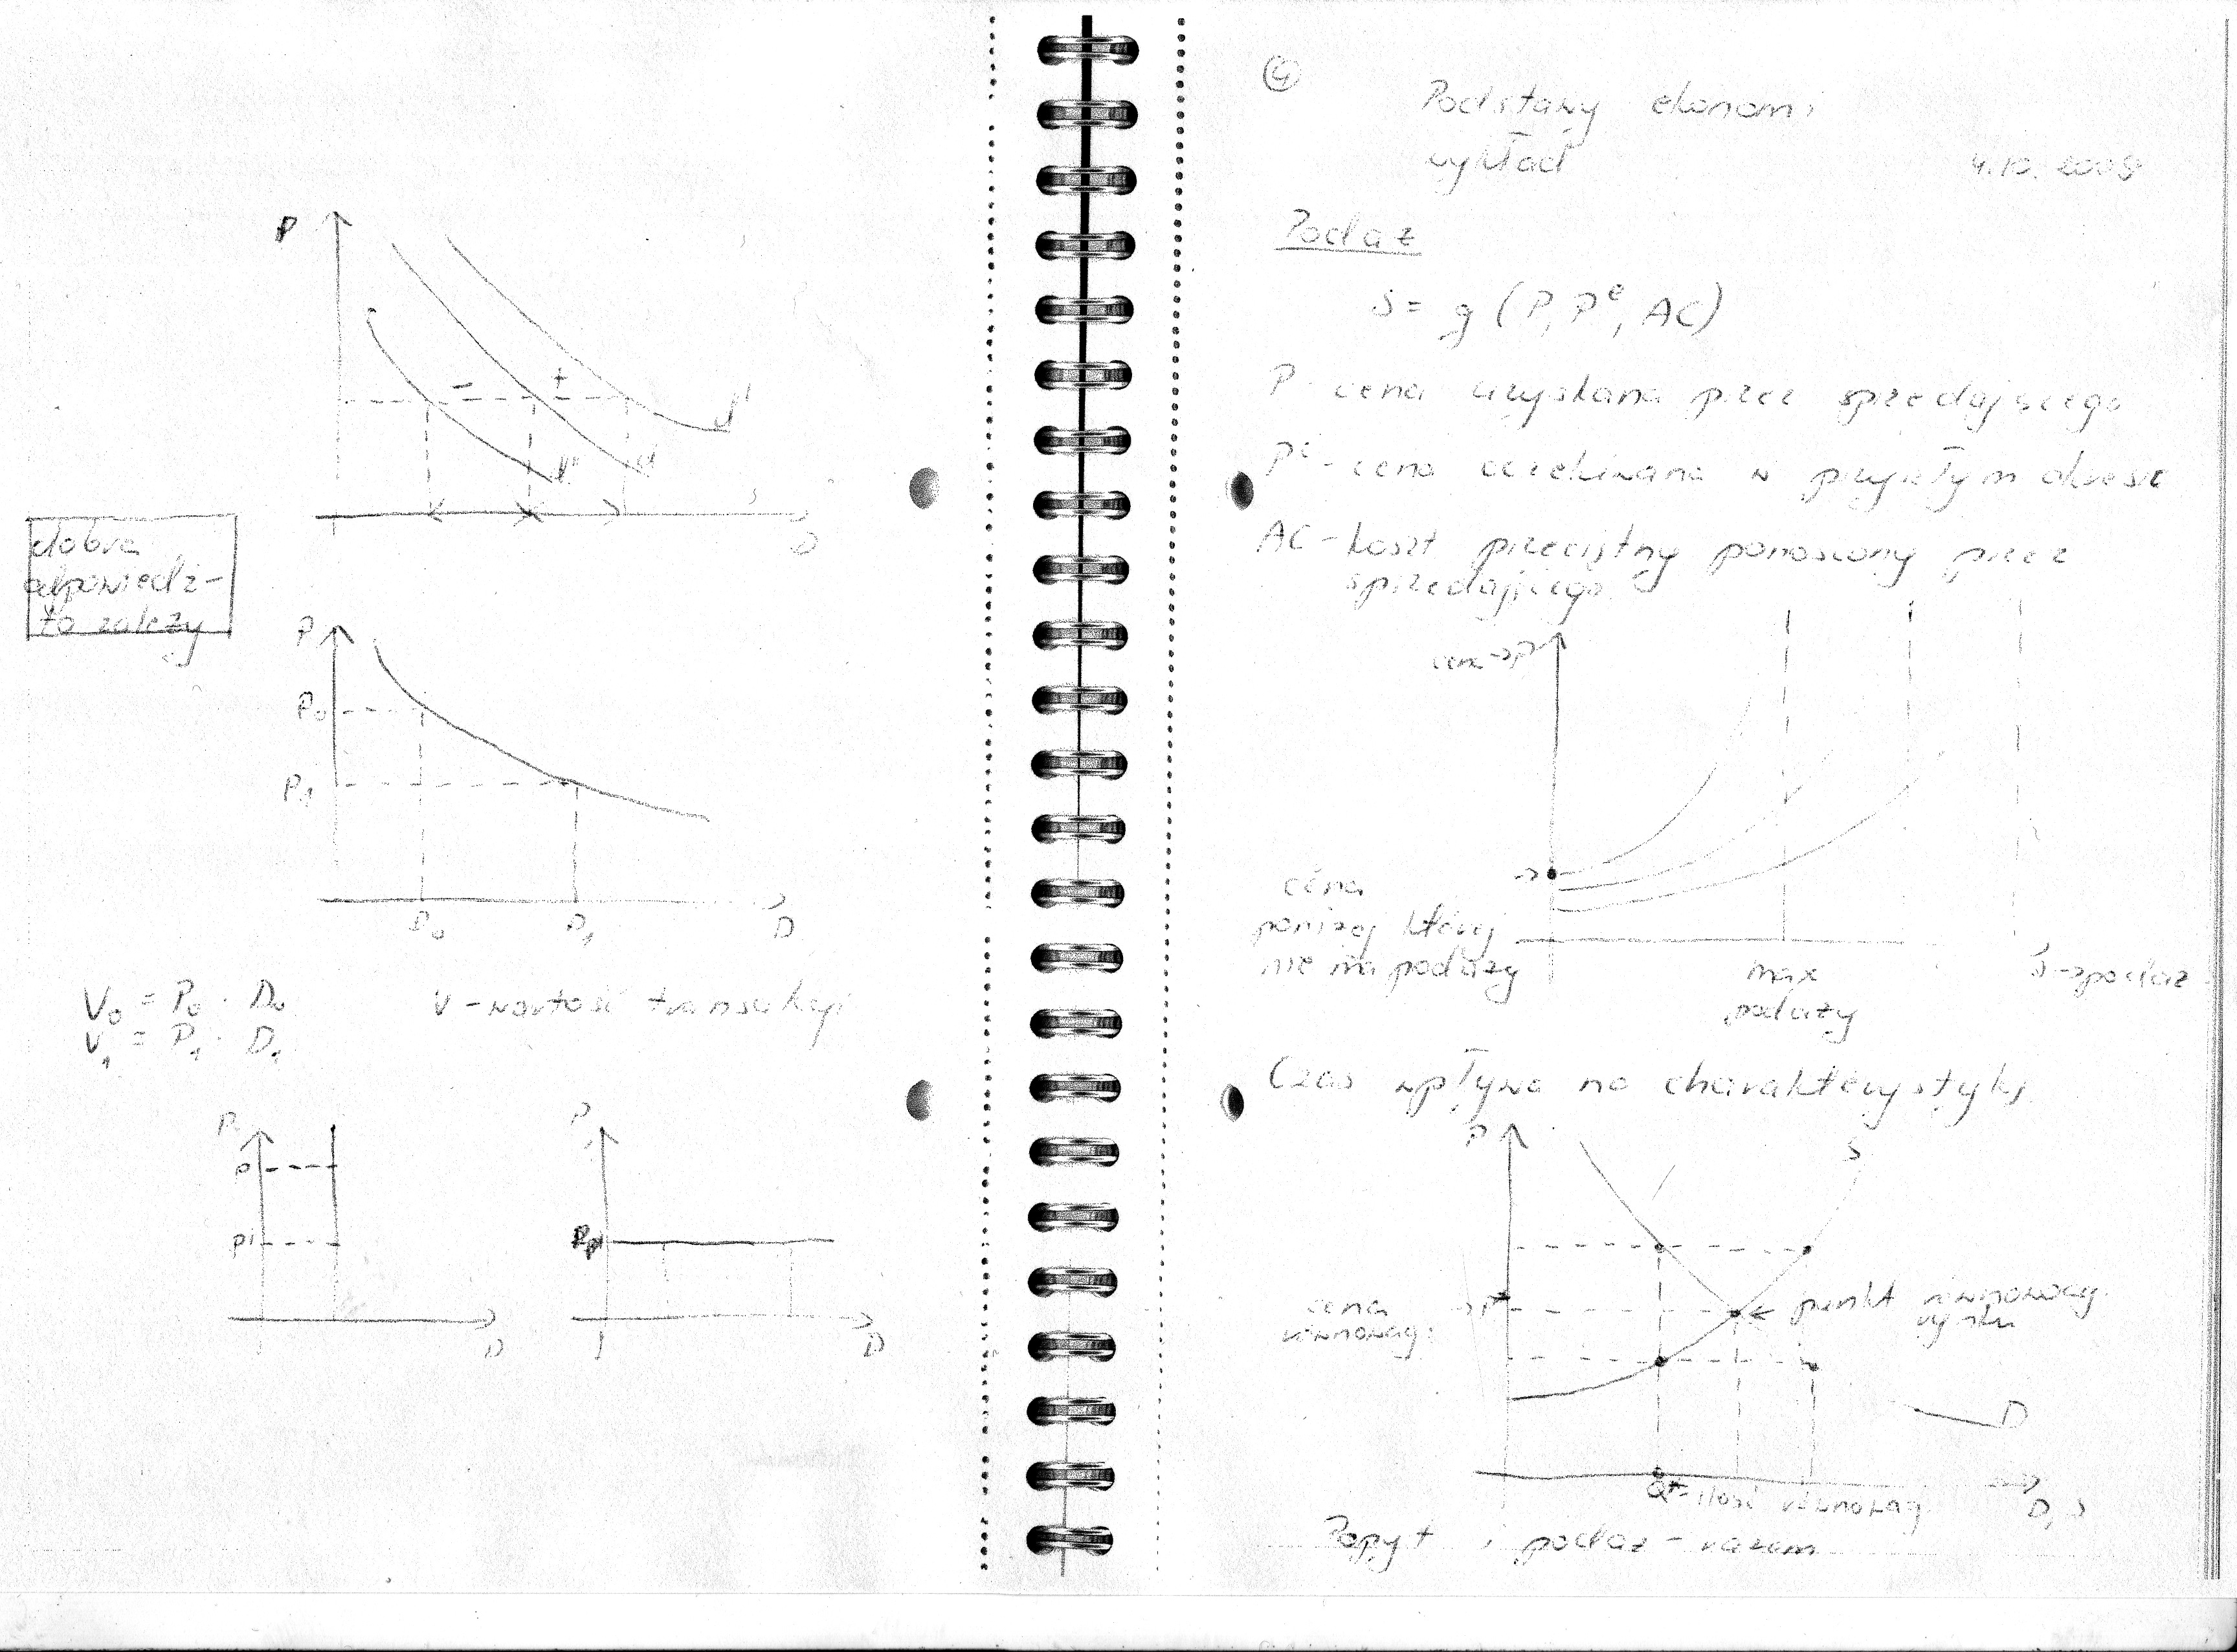 P
- +
d'
d
d''
D
dobra
odpowiedź -
to zależy
P
P₀
P₁
D₀ D₁ D
V₀ = P₀ · D₀ V - wartość transakcji
V₁ = P₁ · D₁
P P
P
P'
D D
④
Podstawy ekonomi
wykład 4.10.2009
Podaż
S = g (P, Pᵉ, AC)
P - cena uzyskana przez sprzedającego
Pᵉ - cena oczekiwana w przyjętym okresie
AC - koszt przeciętny ponoszony przez
sprzedającego
cena → P
cena
poniżej której
nie ma podaży
max
podaży
S → podaż
Czas wpływa na charakterystykę
P S
cena → P*
równowagi
← punkt równowagi
rynku
D
Q* = ilość równowagi D, S
Popyt i podaż - razem